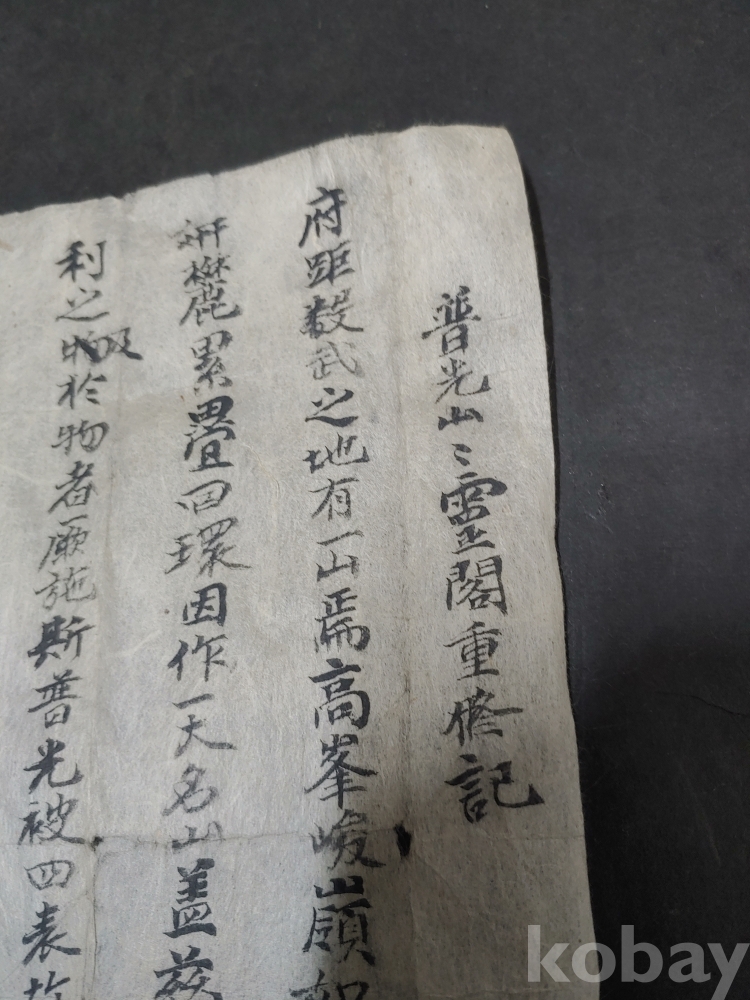 普光山〻霊閣重修記
府距數武之地有一山焉高峯峻嶺如
麓累疊回環因作一大名山盖茲
利之及於物者厥施斯普光被四表
kobay